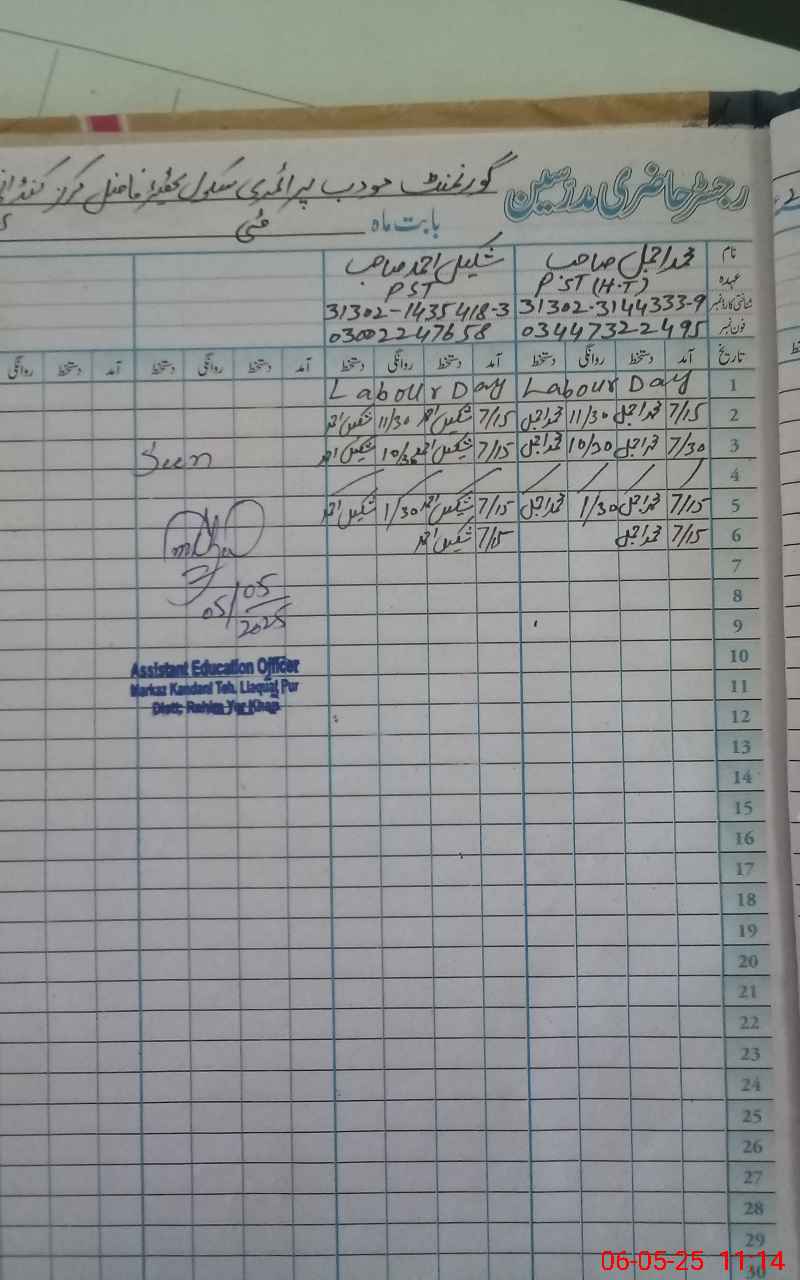 رجسٹر حاضری مدرسین گورنمنٹ مودب پرائمری سکول فاضل مرکز
بابت ماہ مئی
نام محمد اجمل صاحب شکیل احمد صاحب
عہدہ PST (H.T) PST
شناختی کارڈ نمبر 31302-3144333-9 31302-1435418-3
فون نمبر 03447322495 03002247658
تاریخ آمد دستخط روانگی دستخط آمد دستخط روانگی دستخط آمد دستخط روانگی دستخط آمد دستخط روانگی
1 Labour Day Labour Day
2 7/15 محمد اجمل 11/30 محمد اجمل 7/15 شکیل احمد 11/30 شکیل احمد
3 7/30 محمد اجمل 10/30 محمد اجمل 7/15 شکیل احمد 10/30 شکیل احمد
Seen
4 / / / / / / /
5 7/15 محمد اجمل 1/30 محمد اجمل 7/15 شکیل احمد 1/30 شکیل احمد
6 7/15 محمد اجمل 7/15 شکیل احمد
7
8
05/05
2025
9
10
Assistant Education Officer
Markaz Kandani Teh. Liaquat Pur
Distt; Rahim Yar Khan
11
12
13
14
15
16
17
18
19
20
21
22
23
24
25
26
27
28
29
30
06-05-25 11:14